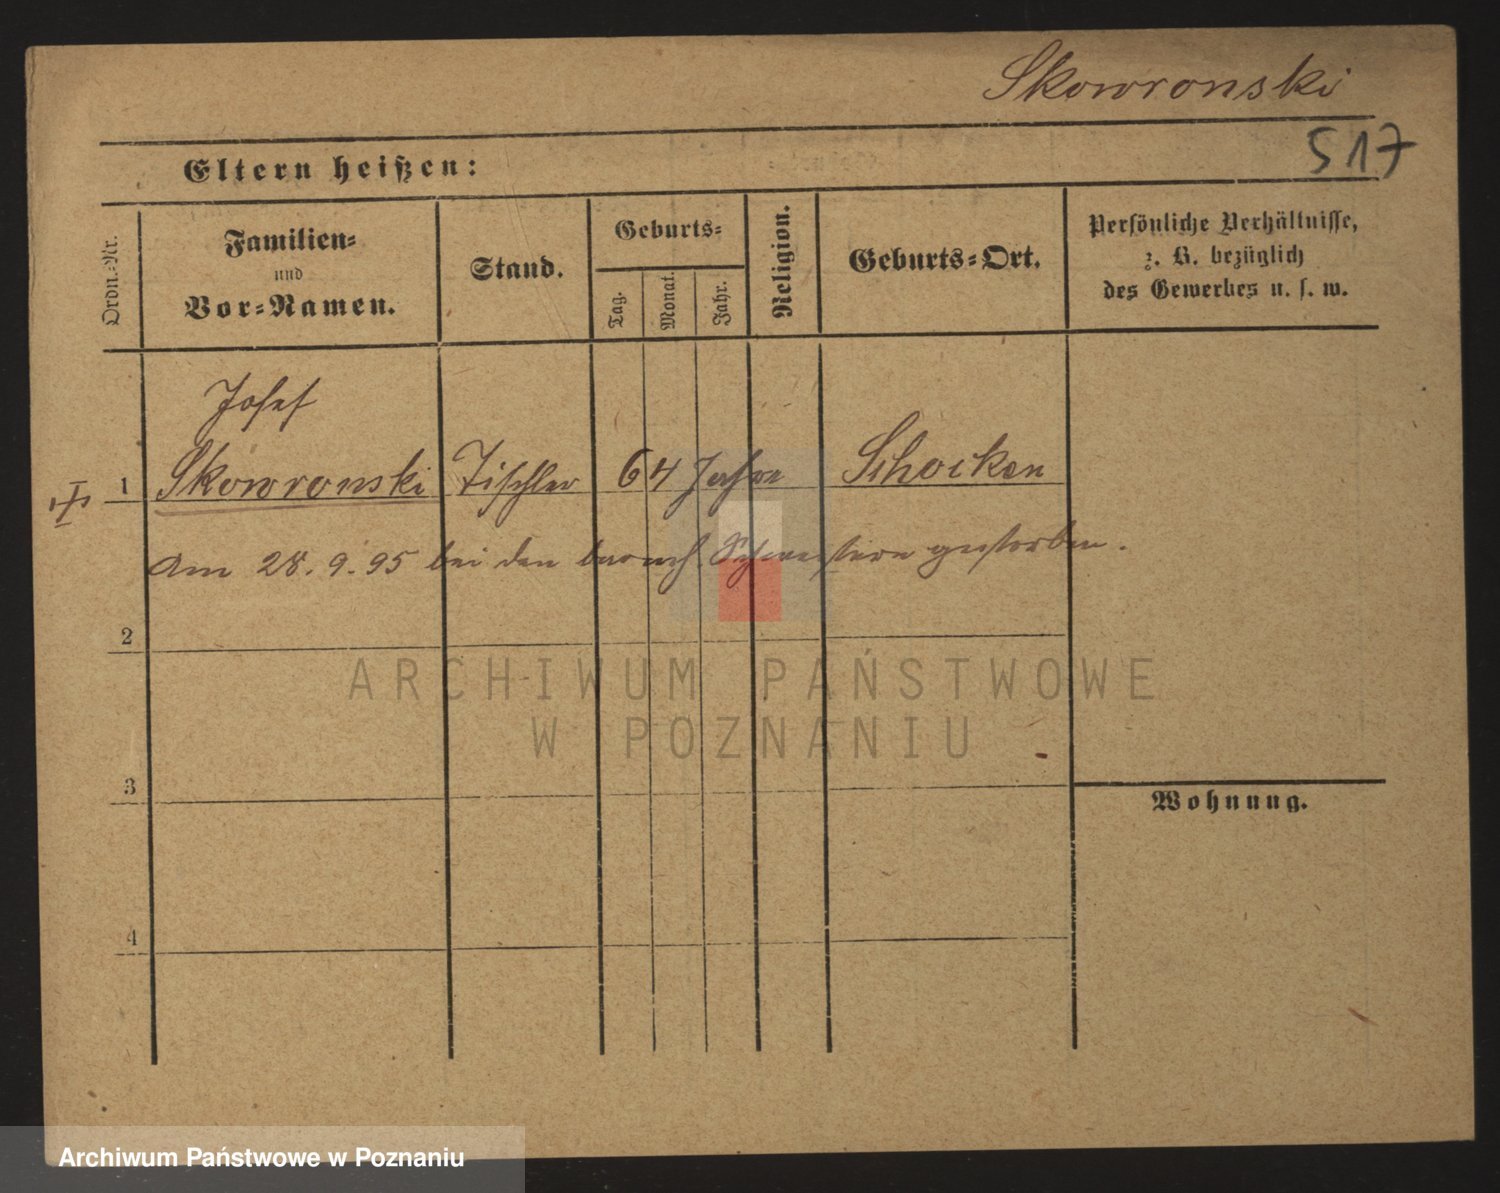 Skowronski
517
Eltern heißen:
Ordn.-Nr.
Familien-
und
Vor-Namen.
Stand.
Geburts-
Tag.
Monat.
Jahr.
Religion.
Geburts-Ort.
Persönliche Verhältnisse,
z. B. bezüglich
des Gewerbes u. s. w.
Josef
1 Skowronski Tischler 64 Jahre Schocken
Am 28. 9. 95 bei den barmh. Schwestern gestorben.
2
ARCHIWUM PAŃSTWOWE
W POZNANIU
3
Wohnung.
4
Archiwum Państwowe w Poznaniu